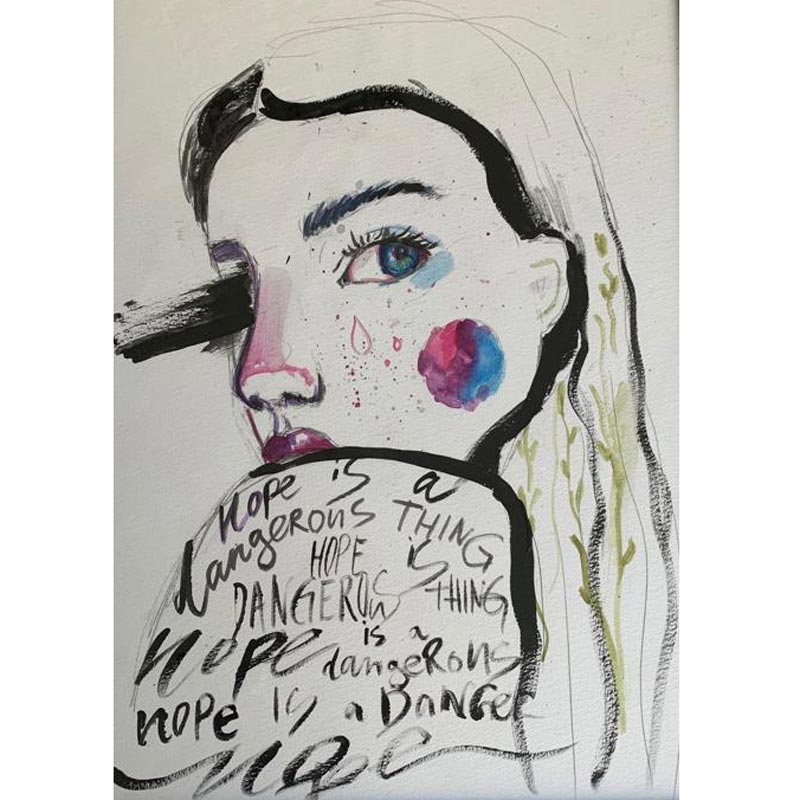 HOPE is a
dangerous THING
HOPE is
DANGEROUS THING
HOPE is a
dangerous
HOPE IS a DANGER
HOPE